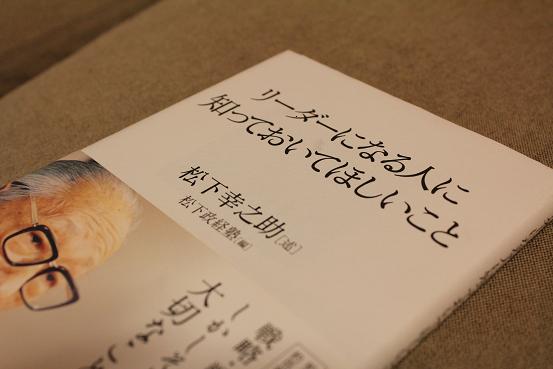 リーダーになる人に
知っておいてほしいこと
松下幸之助[述]
松下政経塾[編]
戦略
しかしそ
大切なこ